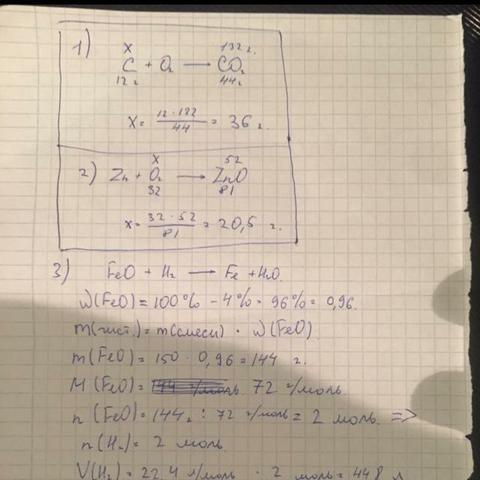 1) C + O₂ → CO₂
x
132 г.
12 г
44 г.
x = 12 · 132 / 44 = 36 г.
2) Zn + O₂ → ZnO
x
52
32
81
x = 32 · 52 / 81 = 20,5 г.
3) FeO + H₂ → Fe + H₂O
W(FeO) = 100% - 4% = 96% = 0,96.
m(чист.) = m(смеси) · W(FeO)
m(FeO) = 150 · 0,96 = 144 г.
M(FeO) = 72 г/моль.
n(FeO) = 144 г : 72 г/моль = 2 моль. =>
n(H₂) = 2 моль.
V(H₂) = 22.4 л/моль · 2 моль = 44.8 л